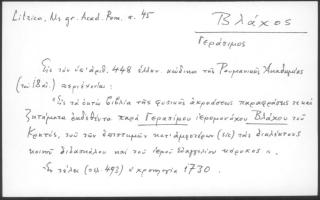 Litzica, Ms gr. Acad. Rom. σ. 45
Βλάχος
Γεράσιμος
Εἰς τὸν ὑπ' ἀριθ. 448 ἑλλην. κώδικα τῆς Ρουμανικῆς Ἀκαδημίας
(τοῦ 18 αἰ.) περιέχονται:
"Εἰς τὰ ὀκτὼ βιβλία τῆς φυσικῆς ἀκροάσεως παραφράσεις τε καὶ
ζητήματα ἐκδεθέντα παρὰ Γερασίμου ἱερομονάχου Βλάχου τοῦ
Κρητός, τοῦ τῶν ἐπιστημῶν κατ' ἀμφοτέρων (sic) τὰς διαλέκτους
κοινοῦ διδασκάλου καὶ τοῦ ἱεροῦ εὐαγγελίου κήρυκος".
Ἐν τέλει (σελ. 493) ἡ χρονολογία 1730.